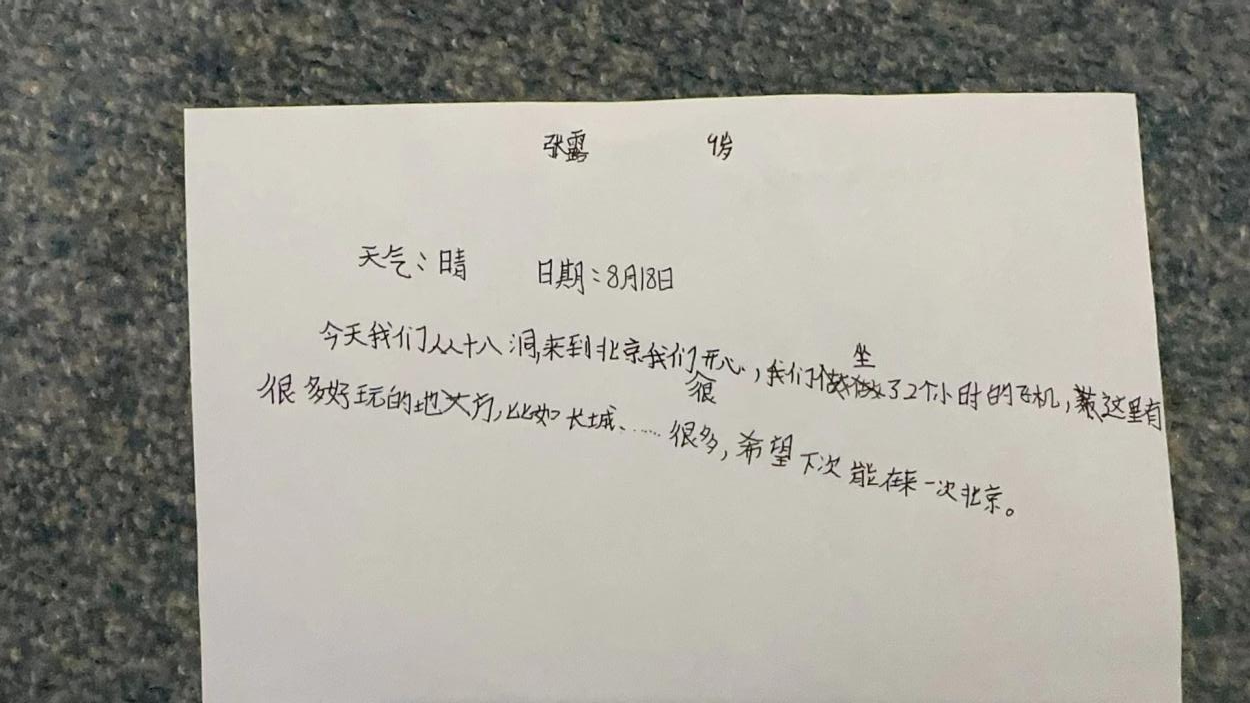 张露 9岁
天气：晴 日期：8月18日
今天我们从十八洞,来到北京我们很开心，我们坐了2个小时的飞机，这里有
很多好玩的地方,比如长城、……很多,希望下次能在来一次北京。